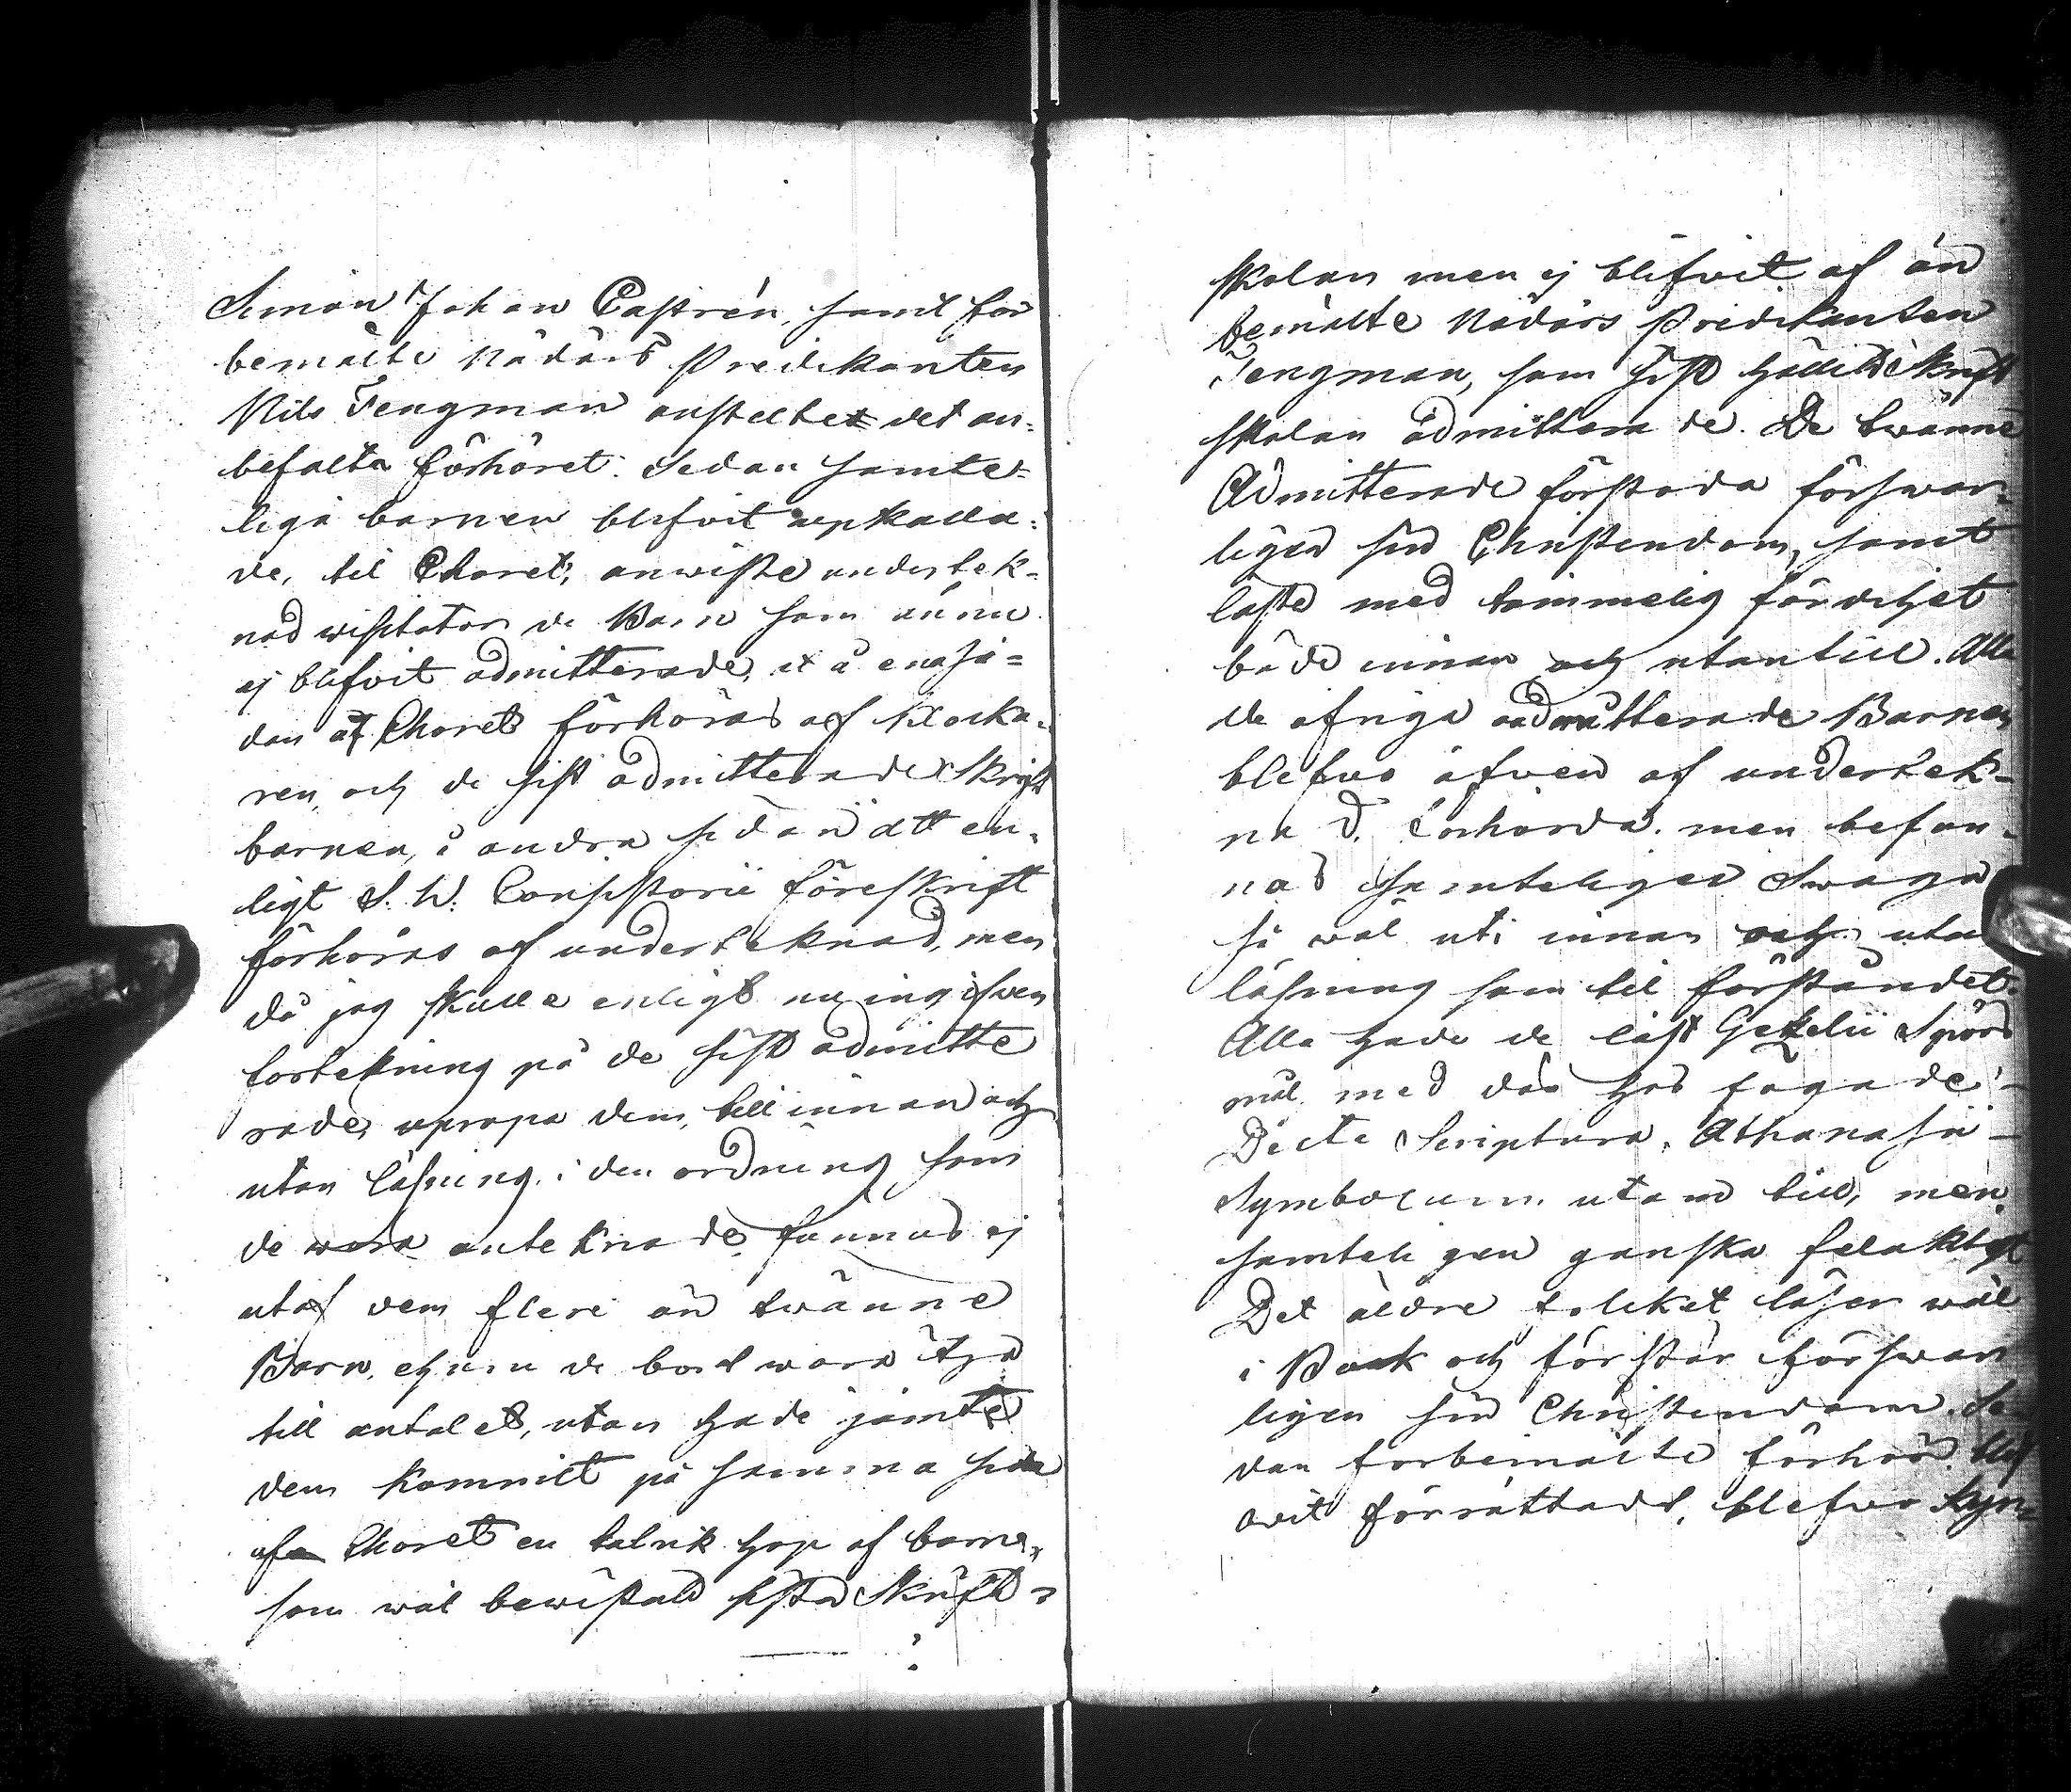 Simon Johan Castrén, samt för
bemälte Nådårs Predikanten
Nils Fengman anstältes det an-
befalta förhöret. Sedan samte-
liga barnen blifvit upkalla-
de, til Choret, anwiste undertek-
nad wisitator de Barn som ännu
ej blifvit admitterade, at å ena si-
dan af Choret förhöras af Klocka-
ren, och de sist admitterade Skrift
barnen, å andra sidan att en-
ligt S. W. Consistorii föreskrift
förhöras af undertecknad, men
då jag skulle enligt en ingifwen
förtekning på de sist admitte
rade, upropa dem, till innan och
utan läsning, i den ordning som
de wora anteknade, funnos ej
utaf dem flere än twänne
Barn, ehuru de bort wara åtta
till antalet, utan hade jämte
dem kommit på samma sida
af Choret en talrik hop af barn,
som wäl bewistat sista Skrift-
skolan men ej blifvit af än
bemälte Nådårs Predikanten
Fengman, som sist hållit Skrift
skolan admitterade. De twänne
Admitterade förstodo förswar-
ligen sin Christendom, samt
läste med temmelig färdighet
både innan och utantill. Alla
de öfriga oadmitterade Barnen
blefvo äfven af undertek-
nad förhörda, men befun-
nos samteligen Swaga
så wäl uti innan och utan
läsning som til förståndet.
Alla hade de läst Gezelii Spörs
mål med där hos fogade
Dicta Scriptura, Athanasii
Symbolum utan till, men
samteligen ganska felaktigt
Det äldre folket läser wäl
i Bok och förstår förswar
ligen sin Christendom. Se-
dan förbemälte förhör blif
wit förrättadt, blefvo Syn-